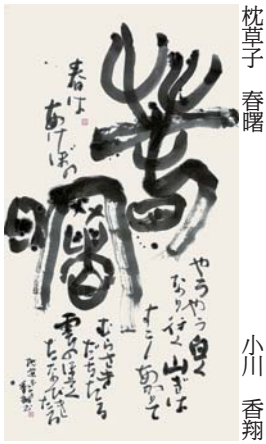 枕草子 春曙
小川 香翔
春曙
春は
あけぼの
やうやう白く
なり行く 山ぎは
すこしあかりて
むらさき
だちたる
雲のほそく
たなびきたる